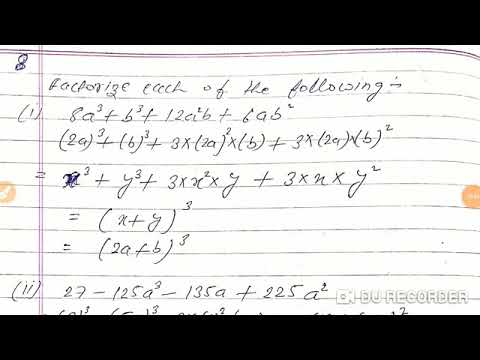 8
Factorize each of the following:-
(i) 8a³ + b³ + 12a²b + 6ab²
(2a)³ + (b)³ + 3×(2a)²×(b) + 3×(2a)×(b)²
= x³ + y³ + 3×x²×y + 3×x×y²
= (x+y)³
= (2a+b)³
(ii) 27 - 125a³ - 135a + 225a²
DU RECORDER